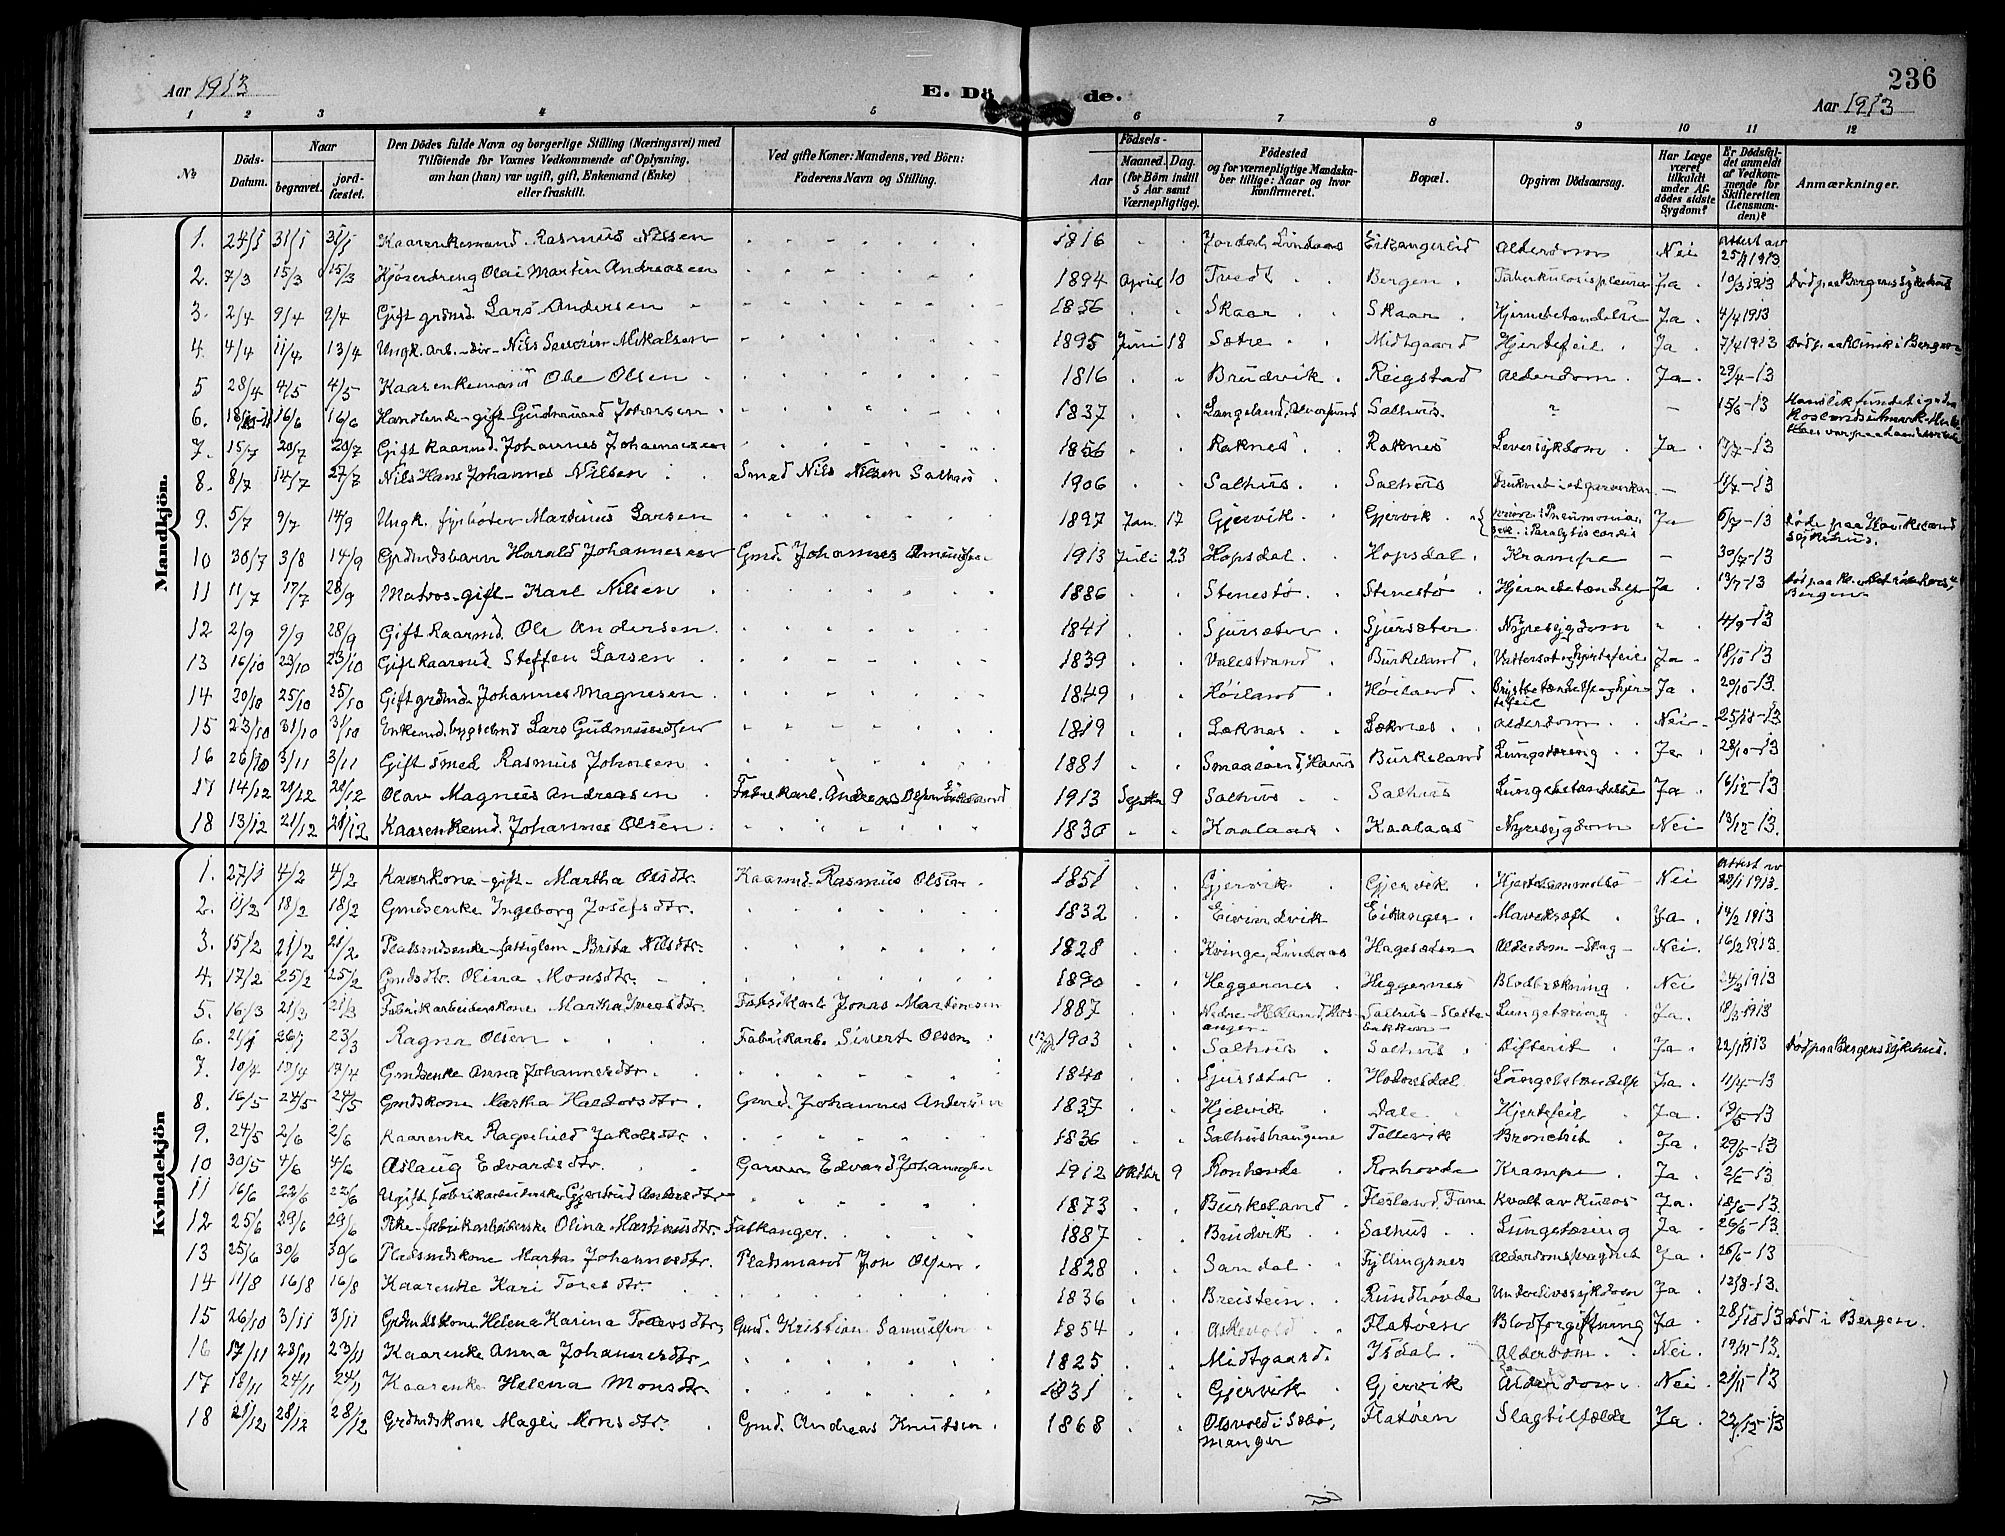 236
Aar 1913
E. Dö de.
Aar 1913
1 2 3 4 5 6 7 8 9 10 11 12
№
Döds-Datum.
Naar
begravet.
jord-fæstet.
Den Dödes fulde Navn og borgerlige Stilling (Næringsvei) med
Tilföiende for Voxnes Vedkommende af Oplysning,
om han (hun) var ugift, gift, Enkemand (Enke)
eller fraskilt.
Ved gifte Koner: Mandens, ved Börn:
Faderens Navn og Stilling.
Födsels-
Aar
Maaned. Dag.
(for Börn indtil
5 Aar samt
Værnepligtige).
Födested
og for værnepligtige Mandska-
ber tillige: Naar og hvor
konfirmeret.
Bopæl.
Opgiven Dödsaarsag.
Har Læge
været
tilkaldt
under Af-
dödes sidste
Sygdom?
Er Dödsfal-
det anmeldt
af Vedkom-
mende for
Skifteretten
(Lensman-
den)?
Anmærkninger.
Mandkjön.
1. 24/1 31/1 31/1 Kaarenkemand Rasmus Nilsen 1816 Lindaas Eikangerlid Alderdom Nei 25/1 1913
2. 7/3 15/3 15/3 Olai Martin Andreasen 1894 April 10 Tvedt Bergen Ja 10/3 1913 Död paa Bergens sykehus
3. 2/4 9/4 9/4 Gift grdmd Lars Andersen 1856 Skaar Skaar Hjernebetændelse Ja 4/4 1913
4. 4/4 11/4 13/4 Ungk. arb. Nils Severin Mikalsen 1895 Juni 18 Sætre Midtgaard Hjertefeil Ja 7/4 1913 Död paa Klinik i Bergen
5 28/4 4/5 4/5 Kaarenkemand Ole Olsen 1816 Brudvik Reigstad Alderdom Ja 29/4-13
6. 16/6 16/6 Handlende-gift Gudmund Johansen 1837 Salhus. - 15/6-13
7. 15/7 20/7 20/7 Gift Kaarmd. Johannes Johannessen 1856 Raknes Raknes Leversykdom Ja 17/7-13
8. 8/7 14/7 27/7 Nils Hans Johannes Nilsen Smed Nils Nilsen Salhus 1906 Salhus Salhus - 11/7-13
9. 5/7 9/7 14/9 Ungk. fyrböter Martinus Larsen 1897 Jan. 17 Gjervik Gjervik Pneumonia Ja 6/7-13 Döde paa Haukeland sykehus.
10 30/7 3/8 14/9 Grdmdsbarn Harald Johannessen Gmd. Johannes 1913 Juli 23 Hopsdal Hopsdal Krampe - 30/7-13
11 11/7 17/7 28/9 Matros-gift-Karl Nilsen 1886 Stenestö Stenestö Hjernebetændelse Ja 13/7-13 Bergen
12 2/9 9/9 28/9 Gift Kaarmd. Ole Andersen 1841 Sjursæter Sjursæter Nyresygdom 4/9-13
13 16/10 23/10 23/10 Gift kaarmd Steffen Larsen 1839 Valestrand Burkeland Ja 18/10-13
14 20/10 25/10 25/10 Gift grdmd. Johannes Magnesen 1849 Höiland Höiland Ja 20/10-13.
15 23/10 31/10 31/10 Lars Gudmundsen 1819 Løknes Løknes Alderdom Nei
16 26/10 3/11 3/11 Gift smed Rasmus Johnsen 1881 Burkeland Lungetæring Ja 28/10-13
17 14/12 21/12 21/12 Olav Magnus Andreasen Andreas Olsen 1913 9 Salhus Salhus Lungebetændelse Ja 16/12-13
18 13/12 21/12 21/12 Kaarenkemd. Johannes Olsen 1830 Kaalaas Kaalaas Nyresygdom Nei 13/12-13.
Kvindekjön
1. 27/1 4/2 4/2 Kaarkone-gift-Martha Olsdtr. Kaarmd-Rasmus Olsen 1851 Gjervik Gjervik Nei 28/1 1913.
2. 11/2 18/2 18/2 Gmdsenke Ingeborg Josefsdtr. 1832 Eivindvik Eikanger Mavekræft Ja 14/2 1913
3. 15/2 21/2 21/2 Plasmdsenke-fattiglem-Brita Nilsdtr. 1828 Kvinge, Lindaas Hagesæter Alderdom-Slag- Nei 16/2 1913
4. 17/2 25/2 25/2 Gmdsdtr. Olina Monsdtr. 1890 Heggernes Heggernes Blodbrækning Nei 1913
5. 16/3 21/3 21/3 Fabrikarbeiderskone Martha Iversdtr. Fabrikarb Jonas Martinsen 1887 Lungetæring Ja 18/3 1913
6. 21/1 26/1 23/3 Ragna Olsen Fabrikarb. Sivert Olsen 1903 Salhus Salhus Difterit Ja 22/1 1913 Död paa Bergens sykehus.
7. 10/4 17/4 17/4 Gmdsenke Anna Johannesdtr. 1840 Sjursæter Hodnesdal Lungebetændelse Ja 11/4-13
8. 16/5 24/5 24/5 Gmdskone Martha Haldorsdtr. Gmd. Johannes Andersen 1837 Hjelvik Dale Hjertefeil Ja 19/5-13
9. 24/5 2/6 2/6 Kaarenke Ragnhild Jakobsdtr 1836 Salhushaugene Tellevik Bronchit Ja 29/5-13
10 30/5 4/6 4/6 Aslaug Edvardsdtr. Garver Edvard Johannesen 1912 Oktbr 9 Ronhovde Ronhovde Krampe Ja 2/6-13
11 16/6 22/6 22/6 Ugift fabrikarbeiderske Gjertrud Andersdtr 1873 Burkeland Flesland, Fane Kvalt av Kulos Ja 18/6-13
12 25/6 29/6 29/6 Pike-fabrikarbeiderske Olina Martinusdtr. Falkanger. 1887 Brudvik Salhus Lungetæring Ja 26/6-13
13 25/6 30/6 30/6 Pladsmdskone Marta Johannesdtr. Pladsmand Jon Olsen 1828 Sandal Fyllingsnes Ja 26/6-13
14 11/8 16/8 16/8 Kaarenke Kari Toresdtr 1836 Breistein Rundhovde Underlivssykdom Ja 12/8-13.
15 26/10 3/11 3/11 Grdmdskone Helena Karina Gmd. Kristian Samuelsen 1854 Askevold Flatöen Blodforgiftning Ja 28/10-13 Död i Bergen.
16 17/11 23/11 23/11 Kaarenke Anna Johannesdtr. 1825 Midtgaard Isdal Alderdom Nei 19/11-13
17 18/11 24/11 24/11 Kaarenke Helena Monsdtr. 1831 Gjervik Gjervik Alderdom Nei 21/11-13
18 21/12 28/12 28/12 Grdmdskone Magli Monsdtr. Gmd. Andreas Knutsen 1868 Flatöen Slagtilfælde Ja 22/12-13
manger